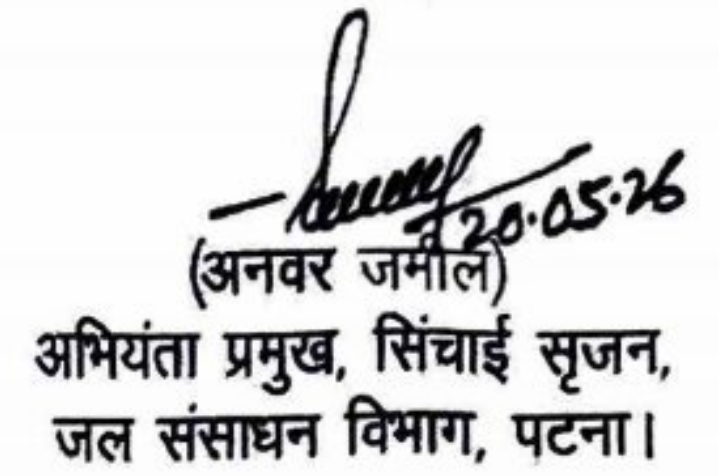 20.05.26
(अनवर जमील)
अभियंता प्रमुख, सिंचाई सृजन,
जल संसाधन विभाग, पटना।